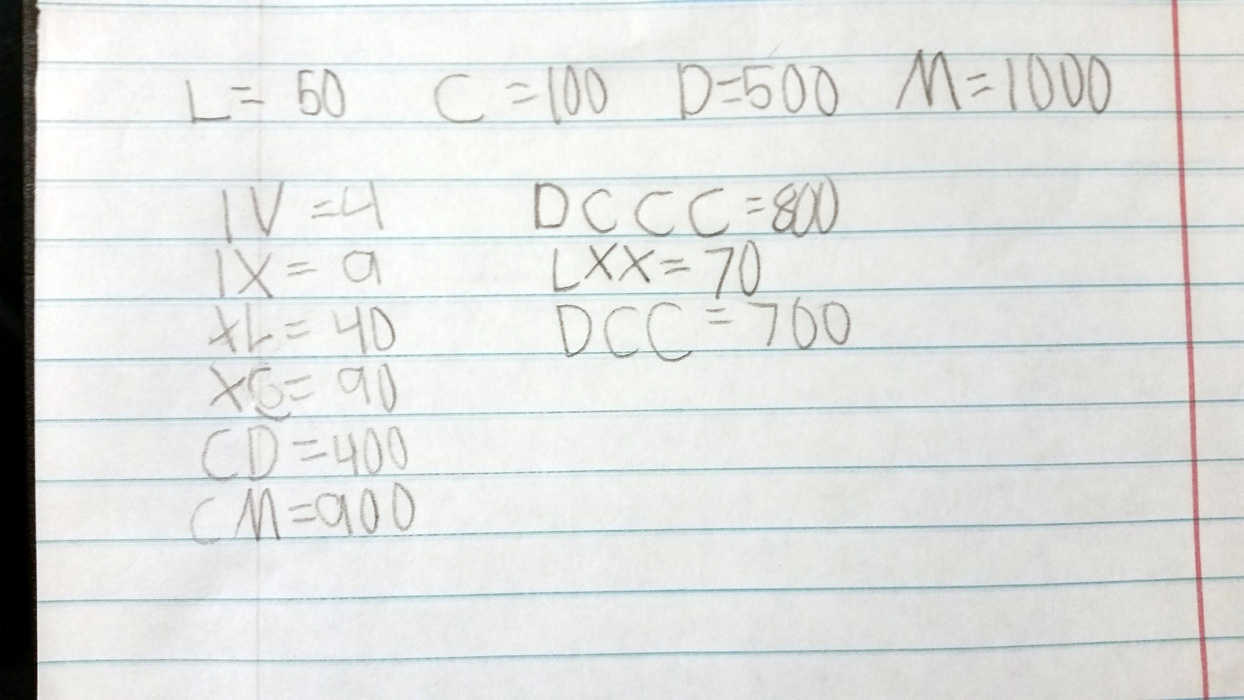 L = 50 C = 100 D = 500 M = 1000
IV = 4 DCCC = 800
IX = 9 LXX = 70
XL = 40 DCC = 700
XC = 90
CD = 400
CM = 900